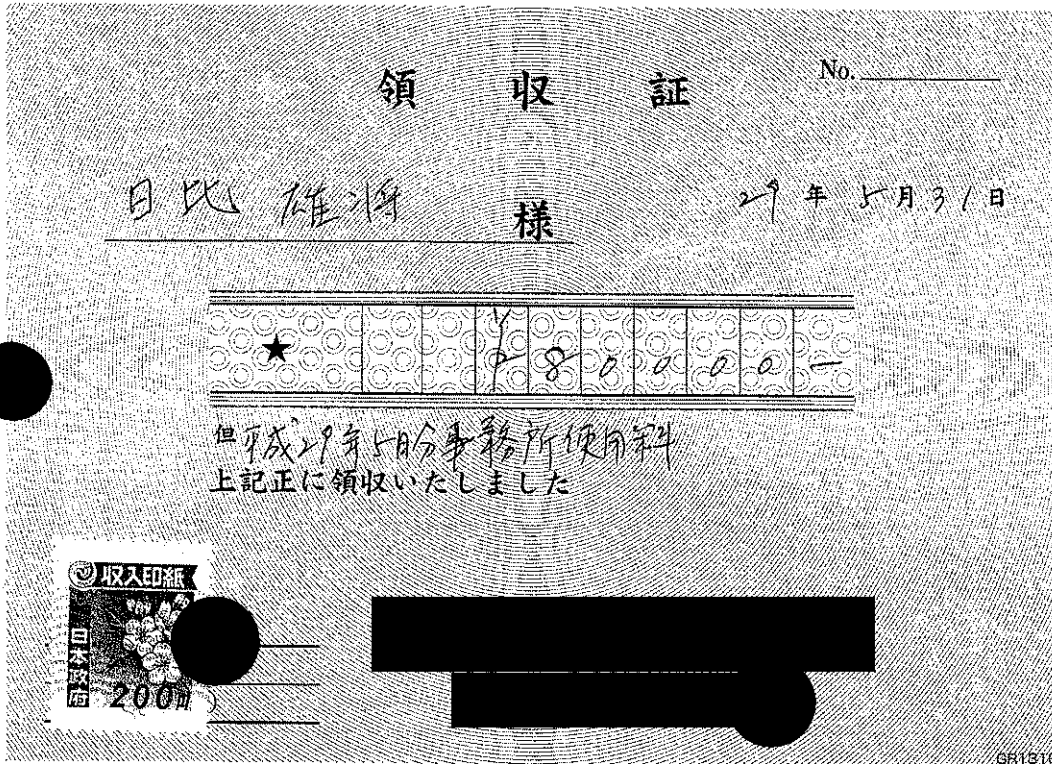 領収証
No.
日比 雄将 様
29年5月31日
★ ¥80000-
但 平成29年5月分事務所使用料
上記正に領収いたしました
収入印紙
日本政府
200円